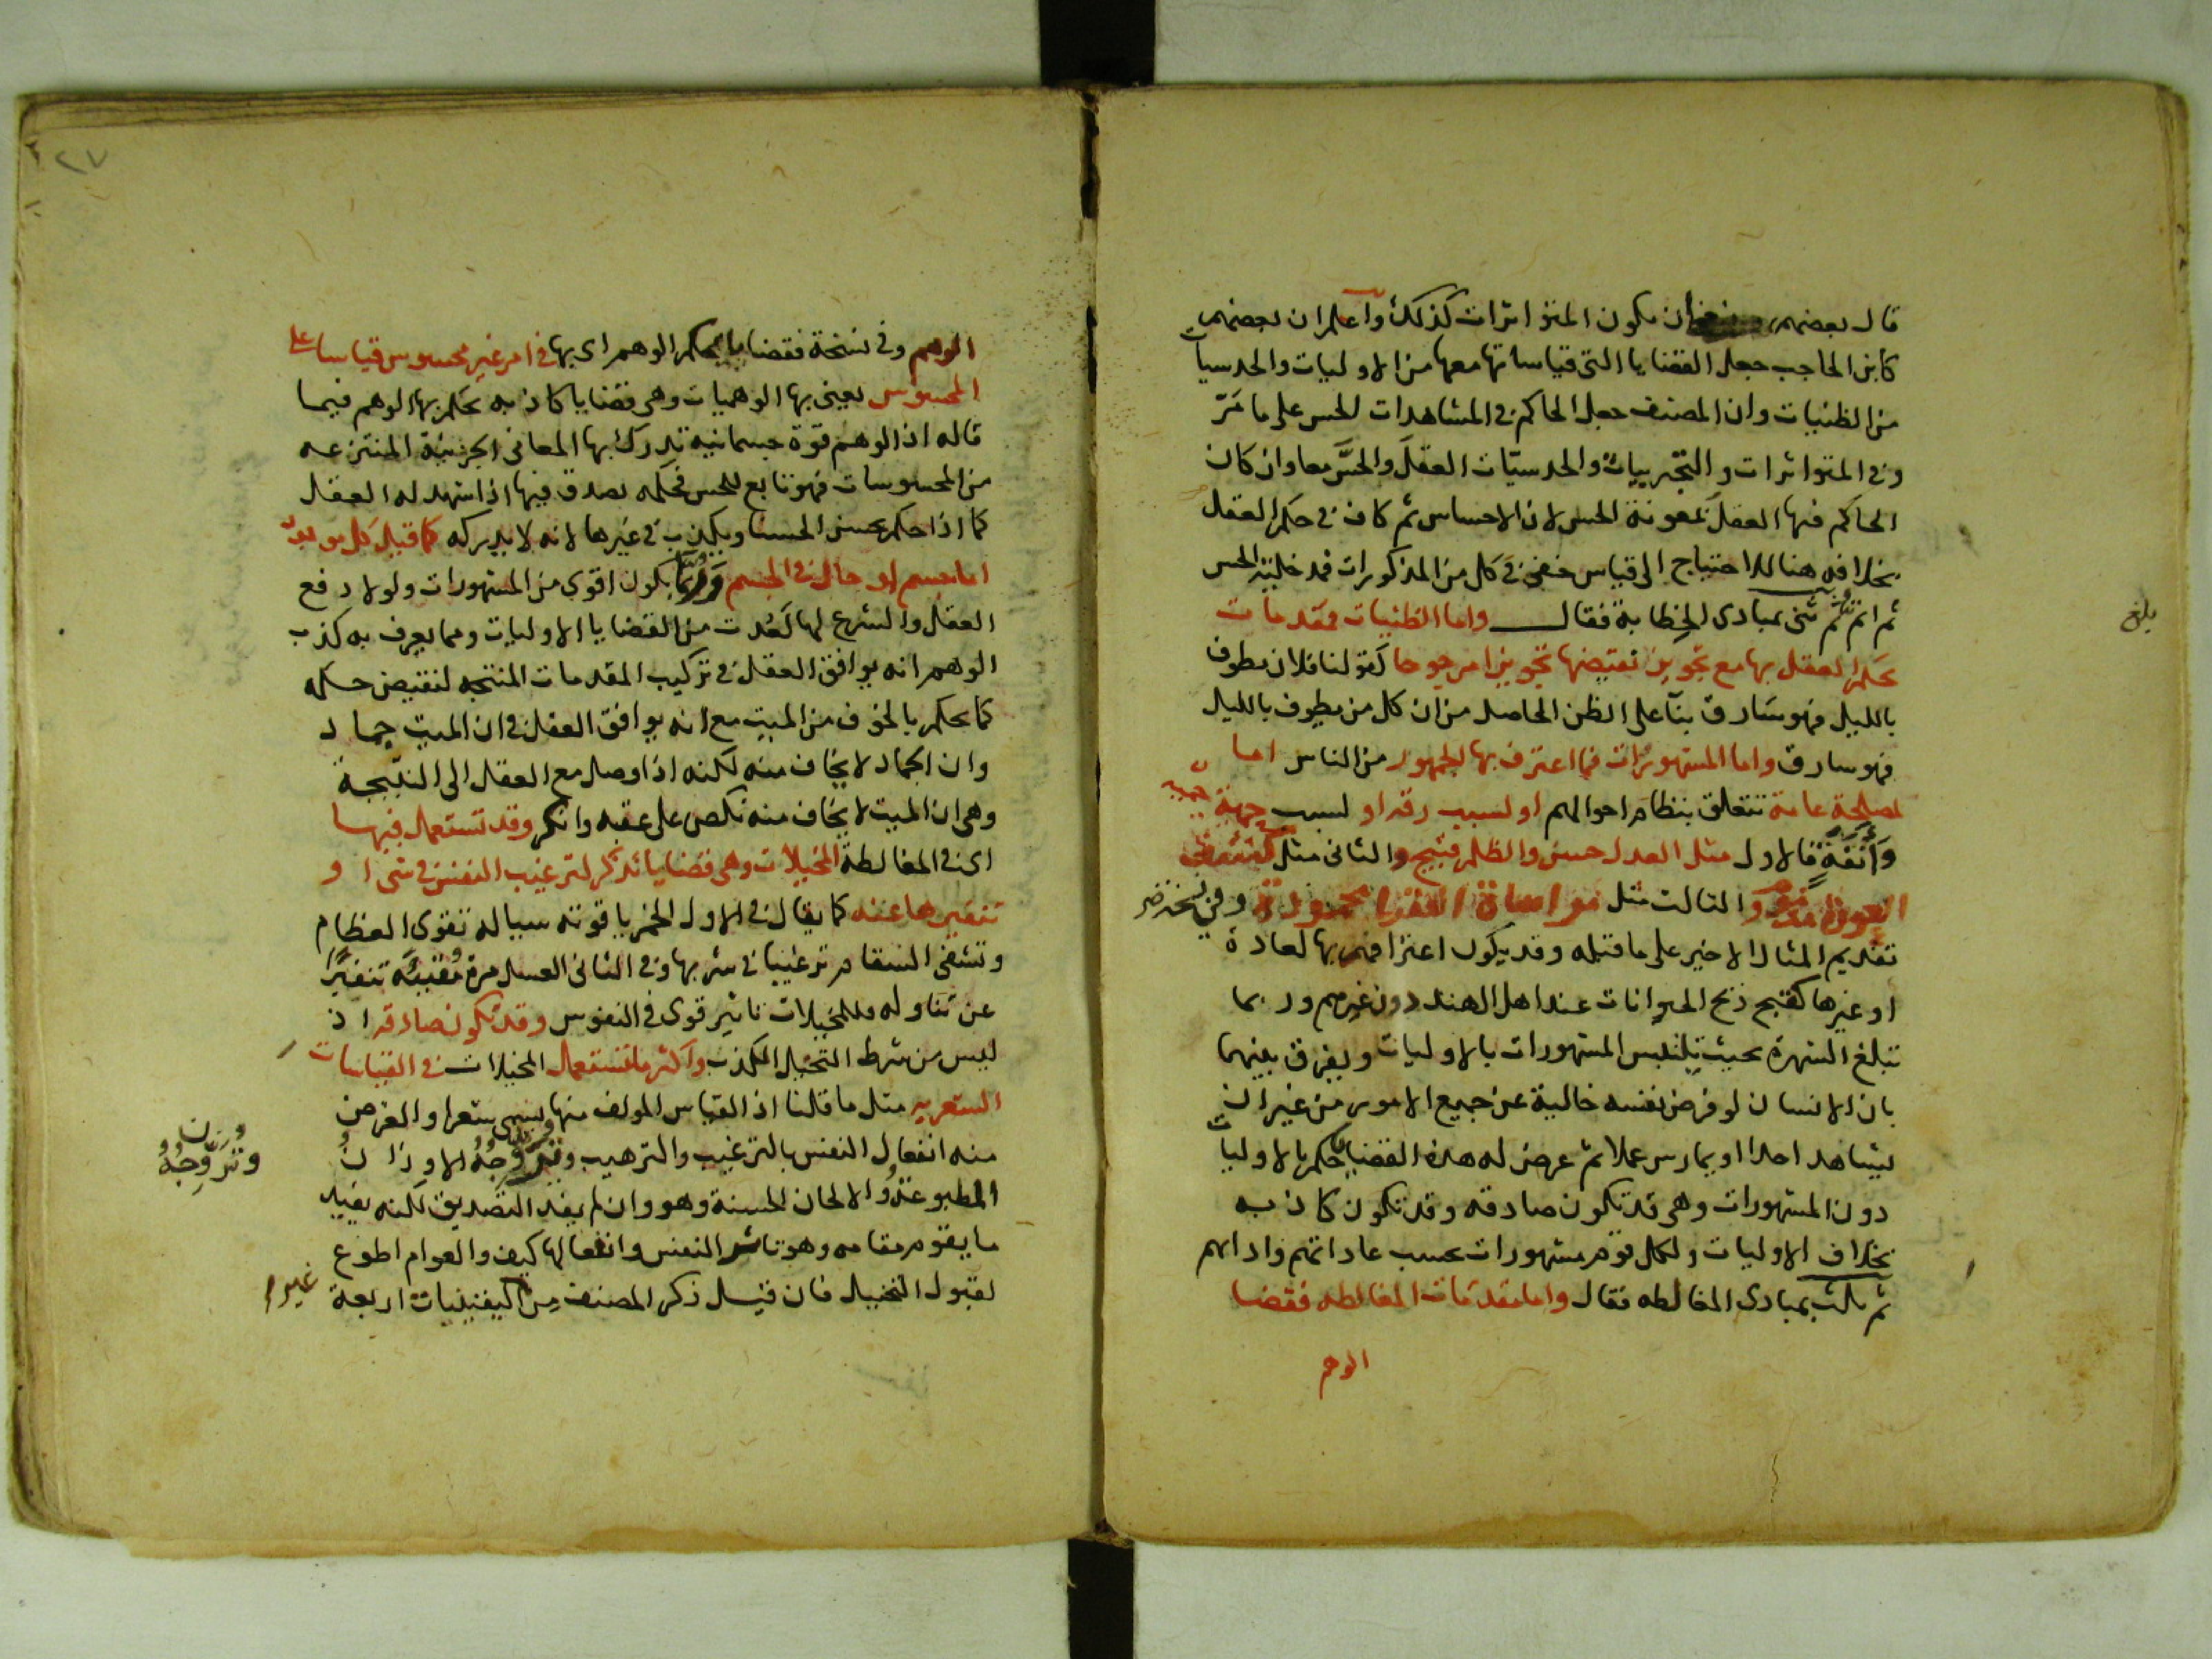 قال بعضهم ان يكون المتواترات كذلك واعلم ان بعضهم
كابن الحاجب جعل القضايا التى قياساتها معها من الاوليات والحدسيات
من الظنيات وان المصنف جعل الحاكم فى المشاهدات الحس على ما مَرّ
وفى المتواترات والتجريبيات والحدسيّات العقلَ والحسَّ معا وان كان
الحاكم فيها العقل بمعونة الحس لان الاحساس ثم كاف فى حكم العقل
بخلافه هنا للاحتياج الى قياس خفى فى كل من المذكورات قد خلته الحس
ثم ثنى بمبادى الخِطابة فقال واما الظنيات فمقدمات
يحكم العقل بها مع تجويز نقيضها تجويزا مرجوحا كقولنا فلان يطوف
بالليل فهو سَارق بنآ على الظن الحاصل من ان كل من يطوف بالليل
فهو سارق واما المشهورات فما اعترف بها الجمهور من الناس اما
لمصلحة عامة تتعلق بنظام احوالهم او لسبب رقة او لسبب حمية
وأنَفَةٍ فالاول مثل العدل حسن والظلم قبيح والثانى مثل كشف
العورة مذموم والثالث مثل مواساة الفقرا محمودة وفى نسخة
تقديم المثال الاخير على ما قبله وقد يكون اعترافهم بها لعادة
او غيرها كقبح ذبح الحيوانات عند اهل الهند دون غيرهم وربما
تبلغ الشهرة بحيث يلتبس المشهورات بالاوليات ويفرق بينهما
بان الانسان لو فرض نفسه خالية عن جميع الامور من غير ان
يشاهد احدا او يمارس عملا ثم عرض له هذه القضايا حكم بالاوليات
دون المشهورات وهى قد تكون صادقه وقد تكون كاذبه
بخلاف الاوليات ولكل قوم مشهورات بحسب عاداتهم وادابهم
ثم ثلث بمبادى المغالطه فقال واما مقدمات المغالطه فقضا
الوهم
بلغ
٢٧
الوهم وفى نسخة فقضايا يحكم الوهم اى بها فى امر غير محسوس قياسا على
المحسوس يعنى بها الوهميات وهى قضايا كاذبه يحكم بها الوهم فيما
قاله اذ الوهم قوة جسمانية تدرك بها المعانى الجزئية المنتزعه
من المحسوسات فهو تابع للحس فحكمه يصدق فيها اذا شهد له العقل
كما اذا حكم بحسن الحسنا ويكذب فى غيرها لانه لا يدركه كما قيل كل موجود
اما جسم او حال فى الجسم وربما يكون اقوى من المشهورات ولولا دفع
العقل والشرع لها لعُدت من القضايا الاوليات ومما يعرف به كذب
الوهم انه يوافق العقل فى تركيب المقدمات المنتجه لنقيض حكمه
كما يحكم بالخوف من الميت مع انه يوافق العقل فى ان الميت جماد
وان الجماد لا يخاف منه لكنه اذا وصل مع العقل الى النتيجة
وهى ان الميت لا يخاف منه نكص على عقبه وانكر وقد تستعمل فيها
اى فى المغالطة المخيلات وهى قضايا تذكر لترغيب النفس فى شئ او
تنفيرها عنه كما يقال فى الاول الخمر ياقوته سياله تقوى العظام
وتشفى السقام ترغيبا فى شربها وفى الثانى العسل مرة مُقيئة تنفيرًا
عن تناوله وللمخيلات تاثير قوى فى النفوس وقد تكون صادقه اذ
ليس من شرط التخيل الكذب واكثر ما تستعمل المخيلات فى القياسات
الشعريه مثل ما قلنا اذ القياس المولف منها يسمى شعرا والغرض
منه انفعال النفس بالترغيب والترهيب وتُرَوِّجُهُ الاوزانُ
المطبوعَةُ والالحان الحسنة وهو وان لم يفد التصديق لكنه يفيد
ما يقوم مقامه وهو تاثر النفس وانفعالها كيف والعوام اطوع
لقبول التخييل فان قيل ذكر المصنف من اليقينيات اربعة
وزان
وتُرَوِّجُهُ
غير